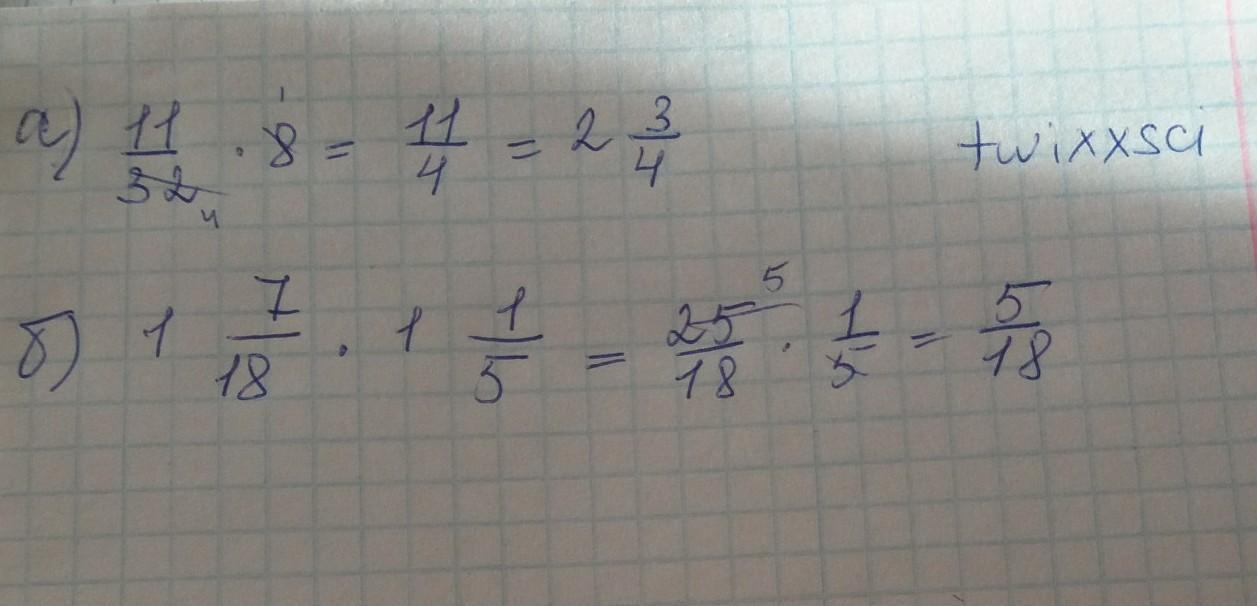 а) 11/32 4 · 8 1 = 11/4 = 2 3/4 twixxsci
б) 1 7/18 · 1 1/5 = 25 5/18 · 1/5 = 5/18